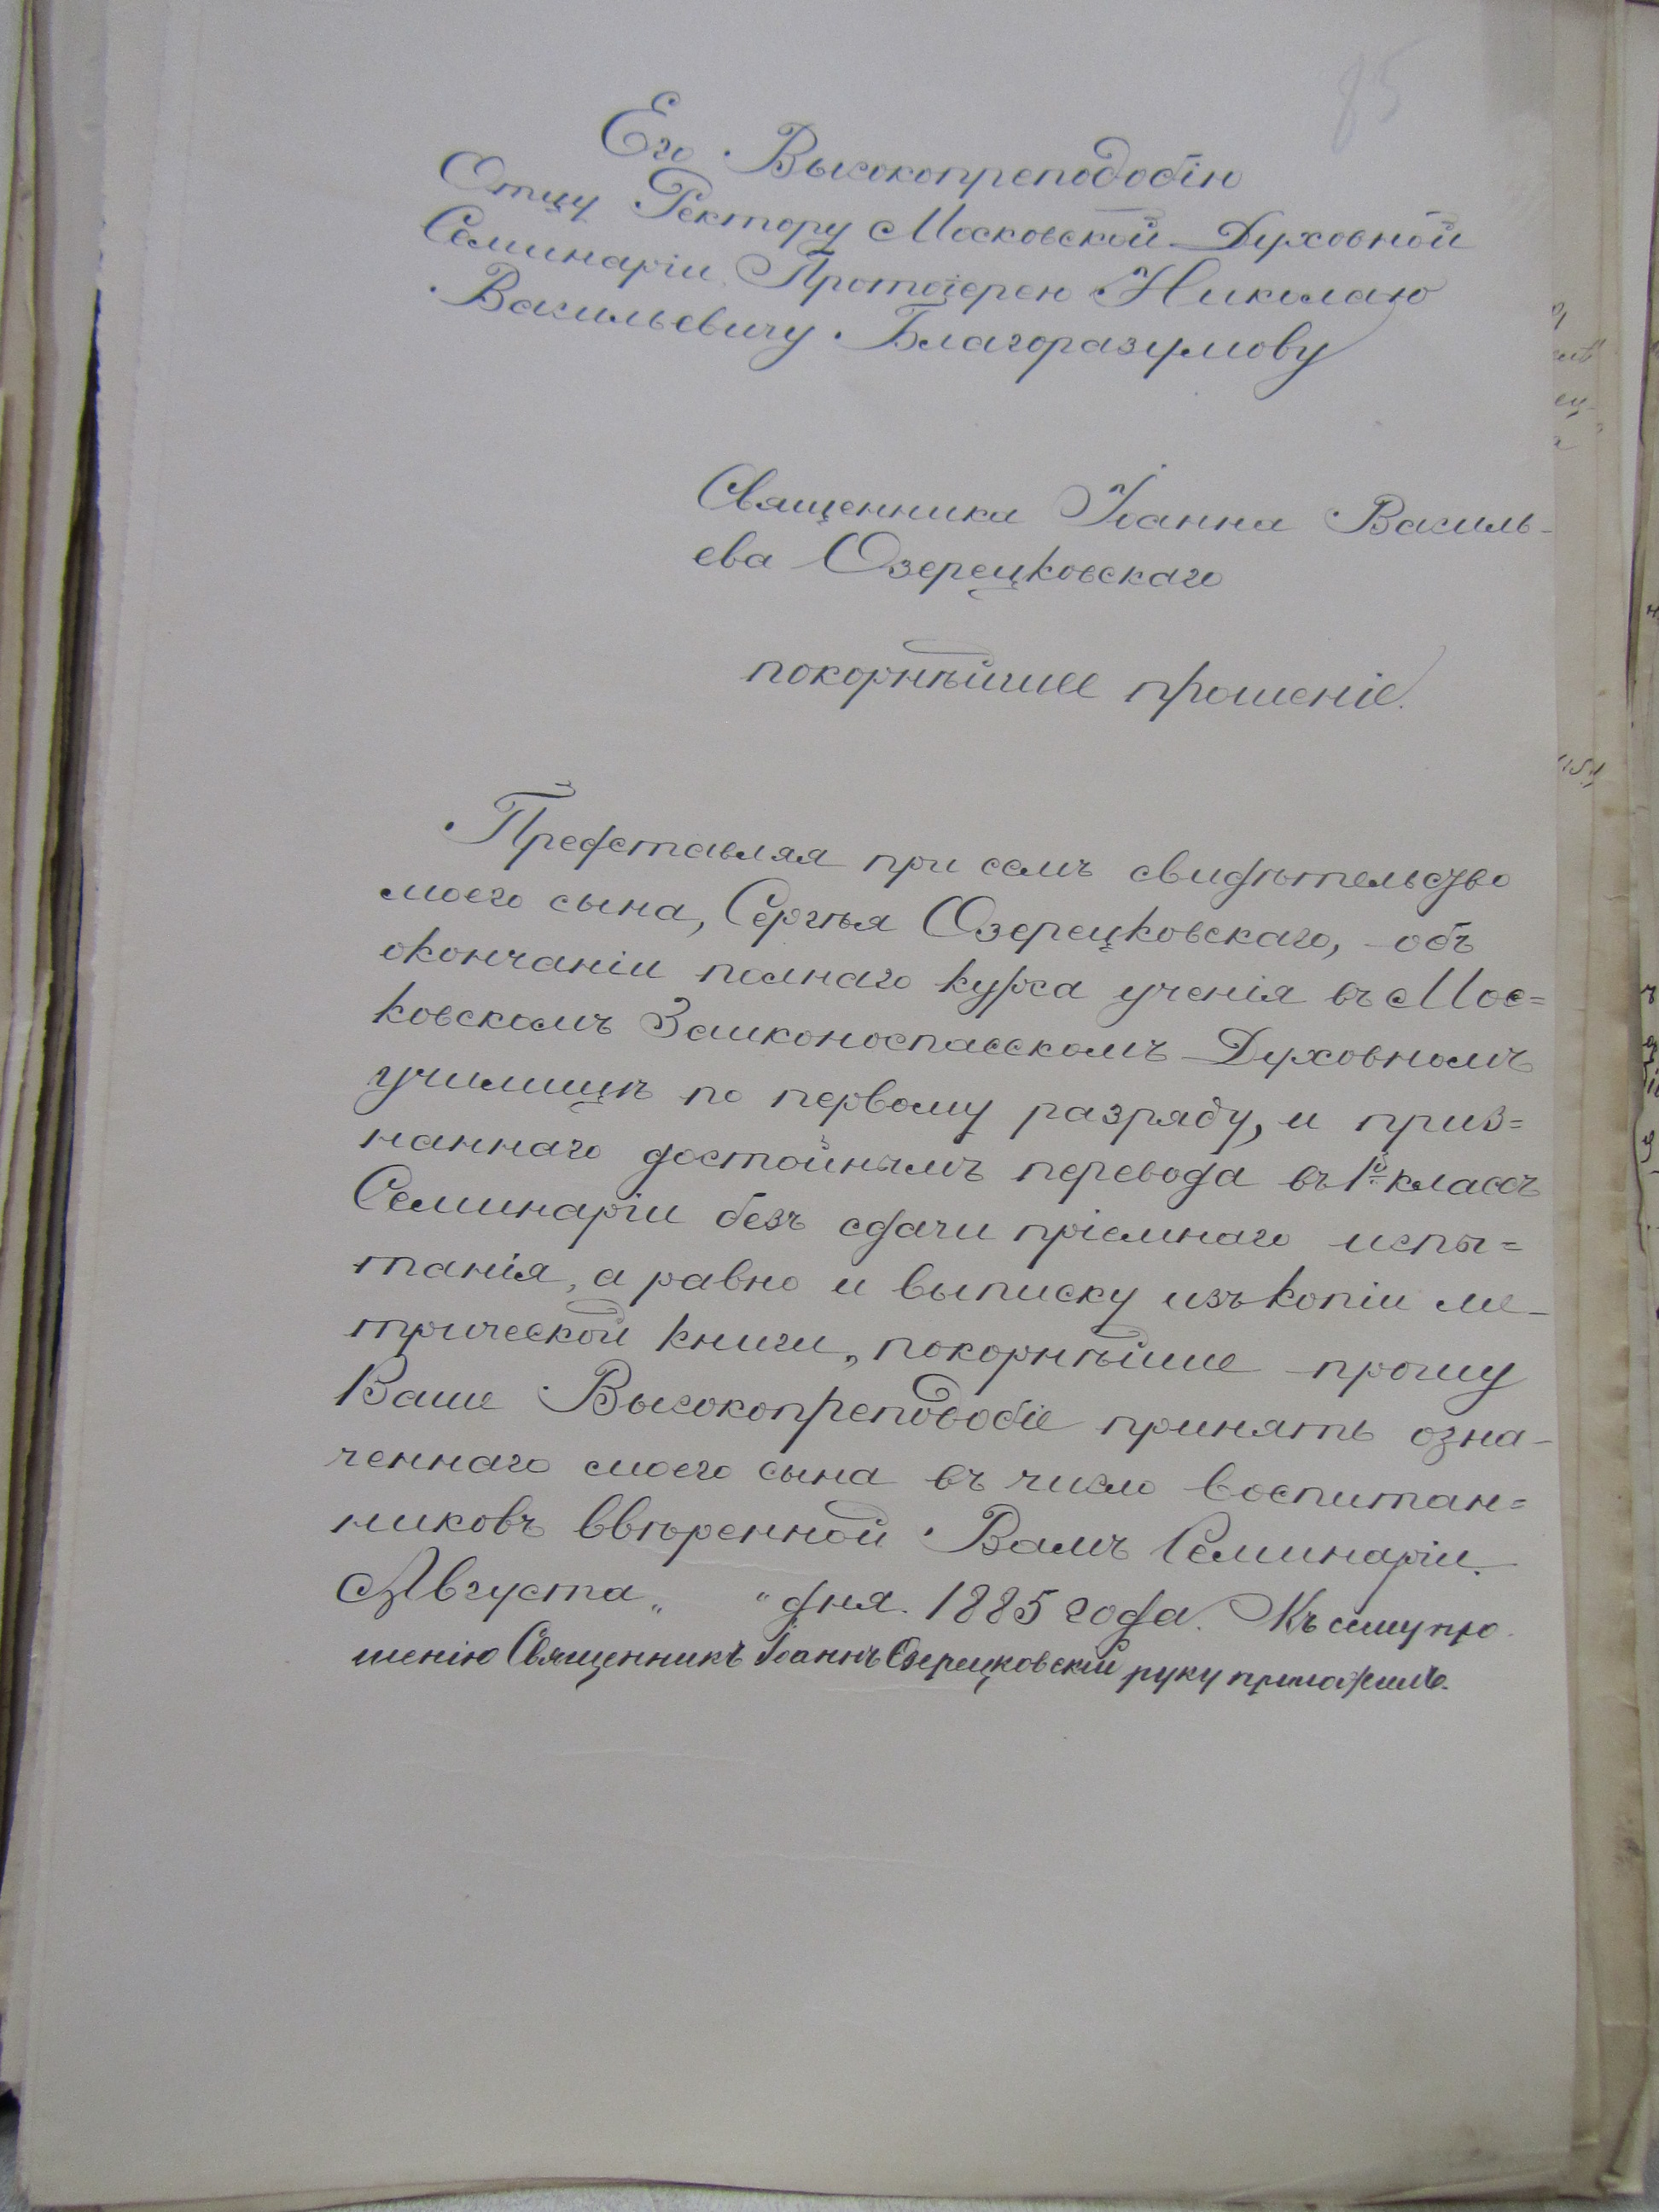 85
Его Высокопреподобію
Отцу Ректору Московской Духовной
Семинаріи Протоіерею Николаю
Васильевичу Благоразумову
Священника Іоанна Василь-
ева Озерецковскаго
покорнѣйшее прошеніе.
Представляя при семъ свидѣтельство
моего сына, Сергѣя Озерецковскаго, объ
окончаніи полнаго курса ученія въ Мос=
ковскомъ Заиконоспасскомъ Духовномъ
училищѣ по первому разряду, и приз=
наннаго достойнымъ перевода въ 1й классъ
Семинаріи безъ сдачи пріемнаго испы=
танія, а равно и выписку изъ копіи ме-
трической книги, покорнѣйше прошу
Ваше Высокопреподобіе принять озна-
ченнаго моего сына въ число воспитан=
никовъ ввѣренной Вамъ Семинаріи.
Августа „ “ дня. 1885 года. Къ сему про
шенію Священникъ Іоаннъ Озерецковскій руку приложилъ.